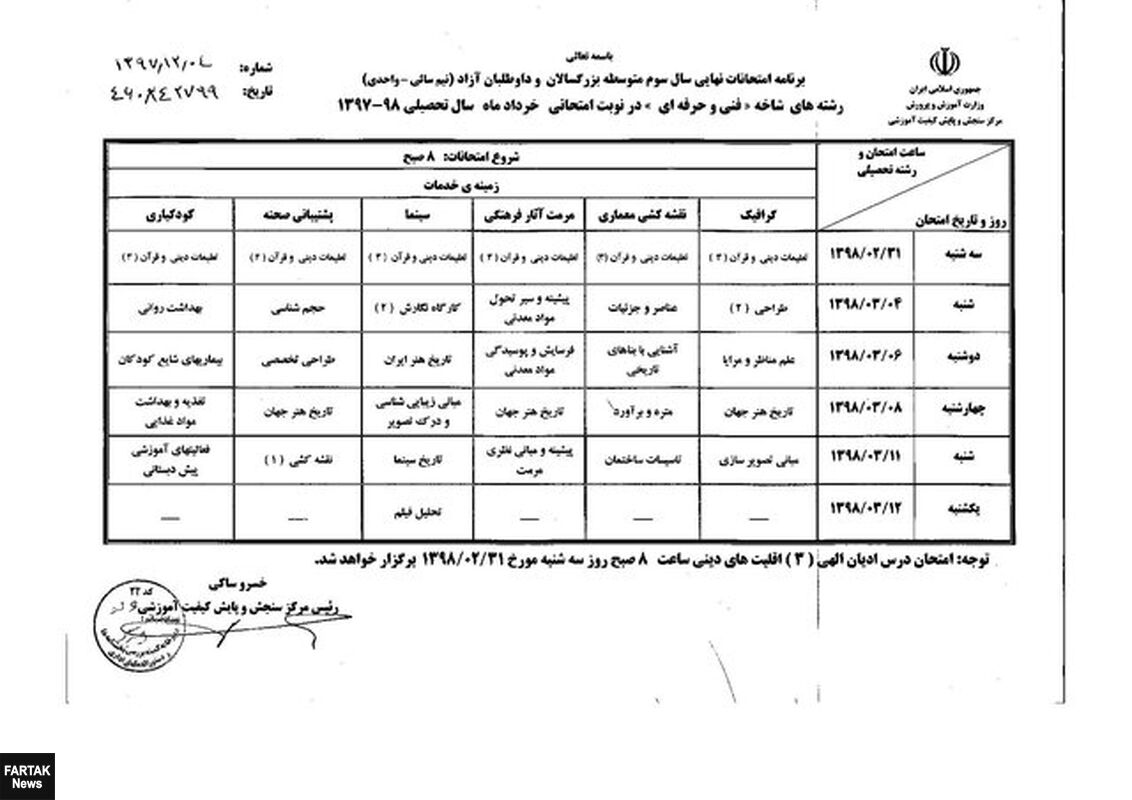 باسمه تعالی
برنامه امتحانات نهایی سال سوم متوسطه بزرگسالان و داوطلبان آزاد (نیم سالی - واحدی)
رشته های شاخه « فنی و حرفه ای » در نوبت امتحانی خرداد ماه سال تحصیلی ۹۸-۱۳۹۷
جمهوری اسلامی ایران
وزارت آموزش و پرورش
مرکز سنجش و پایش کیفیت آموزشی
شماره: ۱۳۹۷/۱۲/۰۴
تاریخ:
ساعت امتحان و رشته تحصیلی
روز و تاریخ امتحان
شروع امتحانات: ۸ صبح
زمینه ی خدمات
گرافیک نقشه کشی معماری مرمت آثار فرهنگی سینما پشتیبانی صحنه کودکیاری
سه شنبه ۱۳۹۸/۰۲/۳۱ تعلیمات دینی و قرآن (۳) تعلیمات دینی و قرآن (۳) تعلیمات دینی و قرآن (۳) تعلیمات دینی و قرآن (۳) تعلیمات دینی و قرآن (۳) تعلیمات دینی و قرآن (۳)
شنبه ۱۳۹۸/۰۳/۰۴ طراحی (۲) عناصر و جزئیات پیشینه و سیر تحول مواد معدنی کارگاه نگارش (۲) حجم شناسی بهداشت روانی
دوشنبه ۱۳۹۸/۰۳/۰۶ علم مناظر و مرایا آشنایی با بناهای تاریخی فرسایش و پوسیدگی مواد معدنی تاریخ هنر ایران طراحی تخصصی بیماریهای شایع کودکان
چهارشنبه ۱۳۹۸/۰۳/۰۸ تاریخ هنر جهان متره و برآورد تاریخ هنر جهان مبانی زیبایی شناسی و درک تصویر تاریخ هنر جهان تغذیه و بهداشت مواد غذایی
شنبه ۱۳۹۸/۰۳/۱۱ مبانی تصویر سازی تاسیسات ساختمان پیشینه و مبانی نظری مرمت تاریخ سینما نقشه کشی (۱) فعالیتهای آموزشی پیش دبستانی
یکشنبه ۱۳۹۸/۰۳/۱۲ — — — تحلیل فیلم — —
توجه: امتحان درس ادیان الهی (۳) اقلیت های دینی ساعت ۸ صبح روز سه شنبه مورخ ۱۳۹۸/۰۲/۳۱ برگزار خواهد شد.
خسرو ساکی
رئیس مرکز سنجش و پایش کیفیت آموزشی
کد ۲۲
FARTAK
News